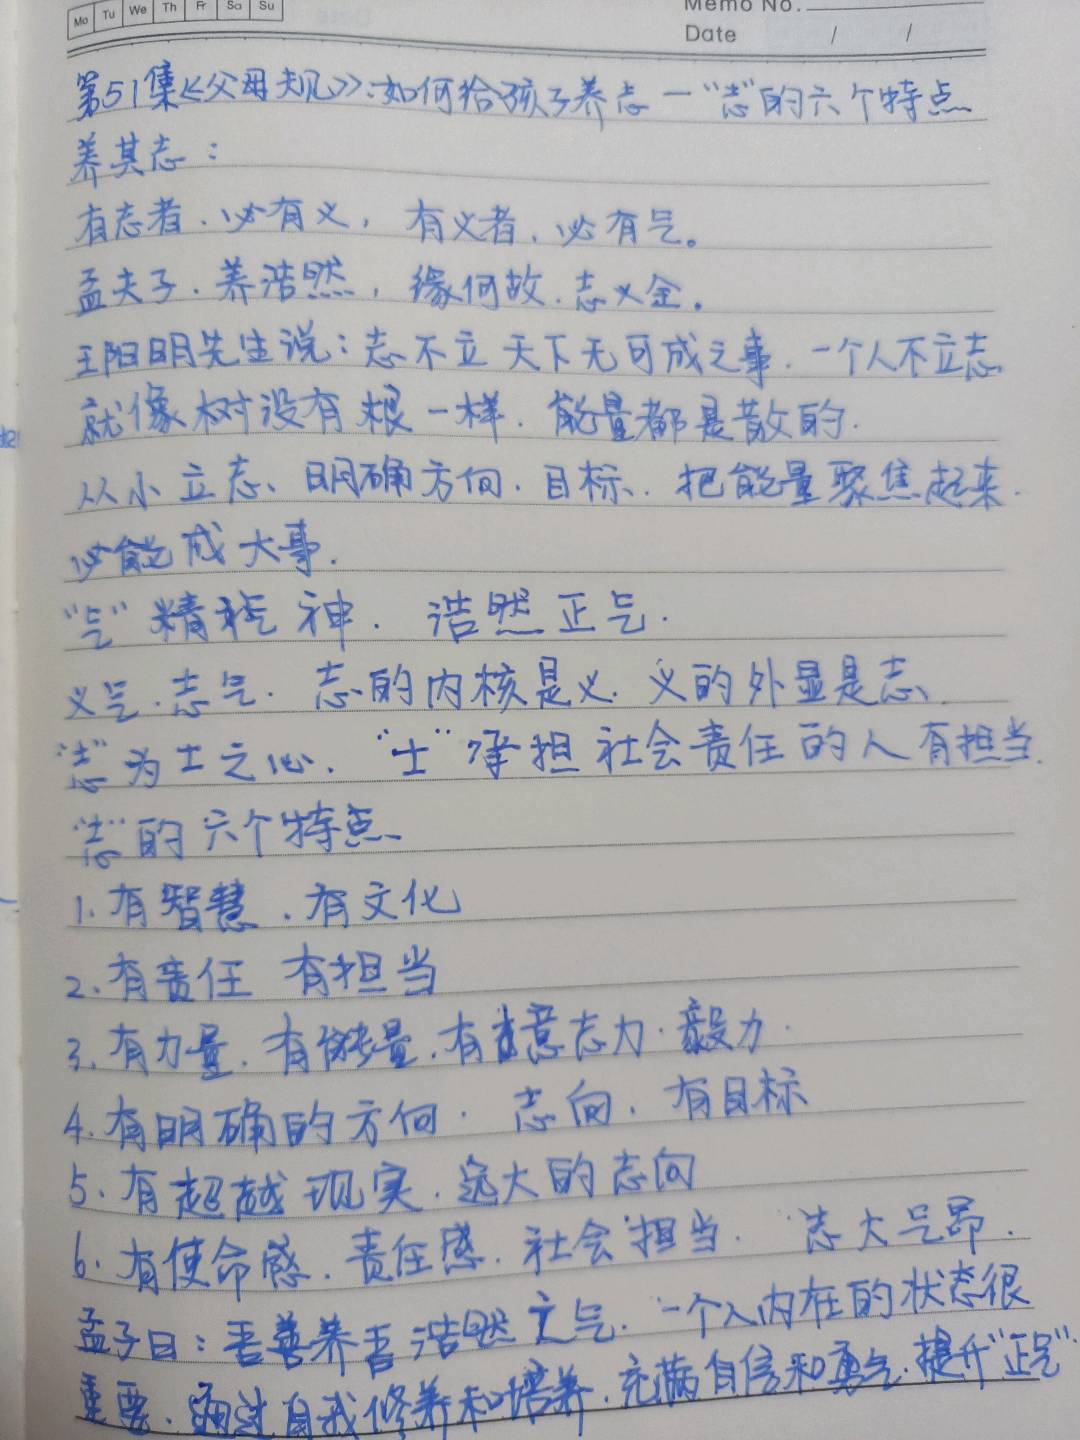 Mo Tu We Th Fr Sa Su
Memo No.
Date / /
第51集《父母规》:如何给孩子养志一"志"的六个特点
养其志:
有志者、必有义,有义者、必有气。
孟夫子、养浩然,缘何故、志义全。
王阳明先生说:志不立天下无可成之事.一个人不立志
就像树没有根一样.能量都是散的.
从小立志、明确方向.目标.把能量聚焦起来.
必能成大事.
"气"精神.浩然正气.
义气.志气.志的内核是义.义的外显是志、
"志"为士之心."士"承担社会责任的人有担当.
"志"的六个特点
1.有智慧、有文化
2.有责任 有担当
3.有力量.有能量.有意志力.毅力.
4.有明确的方向.志向.有目标
5.有超越现实.远大的志向
6.有使命感.责任感.社会担当.志大气昂.
孟子曰:吾善养吾浩然之气.一个人内在的状态很
重要.通过自我修养和培养.充满自信和勇气.提升"正气"